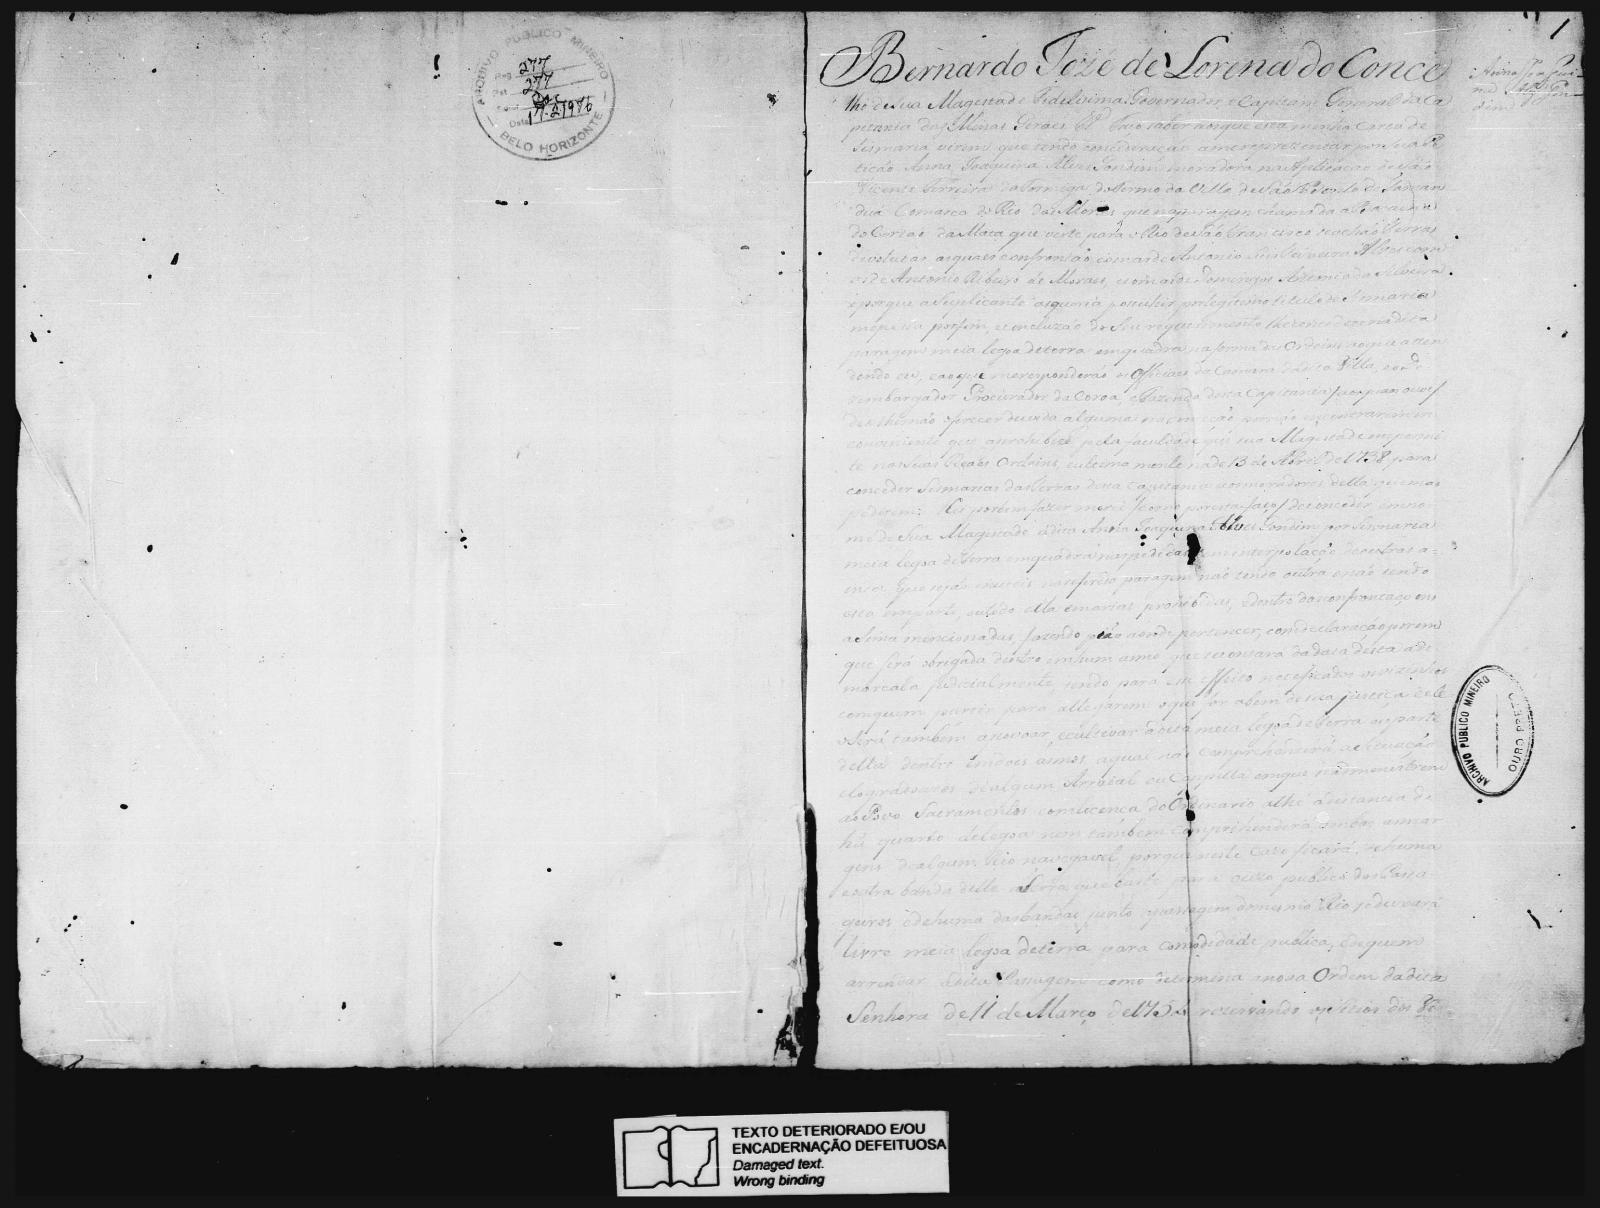 ARCHIVO PUBLICO MINEIRO
Reg. 277
277
Data 17-2-1986
BELO HORIZONTE
1
Bernardo Jozé de Lorena do Conce
lho de Sua Magestade Fidelissima Governador e Capitam General da Ca
pitania das Minas Geraes &ª Faço saber aos que esta minha Carta de
Sesmaria virem que tendo concideração a me reprezentar por Sua Pe
tição Anna Joaquina Alves Gondim moradora na Aplicação de São
Vicente Ferreira da Formiga do Termo da Villa de São Bento do Taman
duá Comarca do Rio das Mortes que na paragem chamada a
do Certão da Mata que verte para o Rio de São Francisco se achão Terras
devolutas as quaes confrontão com as de Antonio Alves com
as de Antonio Ribeiro de Moraes, e com as de Domingos Antonio da Silveira
e porque a Suplicante as queria possuhir por legitimo titulo de Sesmaria
me pedia por fim, e concluzão do Seu requerimento lhe concedece na dita
paragem meia legoa de terra em quadra na forma das Ordens ao que atten
dendo eu, e ao que me responderão os Officiaes da Camara da dita Villa, e o D.
zembargador Procurador da Coroa, e Fazenda desta Capitania
de se lhe não oferecer duvida alguma na concecão por não encontrarem in
conveniente que a prohibice pela faculdade que Sua Magestade me permi
te nas Suas Reaes Ordens, e ultima mente na de 13 de Abril de 1738 para
conceder Sesmarias das terras desta Capitania aos moradores della que mas
pedirem: Hei por bem fazer merce /como por esta faço/ de conceder em no
me de Sua Magestade á dita Anna Joaquina Alves Gondim por Sesmaria
meia legoa de terra em quadra na pedida sem interpolação de outras a-
inda que sejão inuteis na referida paragem não tendo outra e não sendo
esta em parte, ou todo della em arias prohibidas, e dentro das confrontaçoens
a Sima mencionadas, fazendo pião aonde pertencer, com declaração porem
que será obrigada dentro em hum anno que se contara da data desta a de
marcala judicialmente, sendo para esse effeito notificados os vizinhos
com quem partir para allegarem o que for a bem de sua justiça e ele
o Será tambem a povoar, e cultivar a dita meia legoa de terra ou parte
della dentro em dois annos, a qual não comprehenderá a situação
e logradouros de algum Arraial ou Cappella em que se administrem
ao Povo Sacramentos com licença do Ordinario athé a distancia de
hú quarto de legoa nem tambem comprehenderá ambas as mar
gens de algum Rio navegavel, porque neste Cazo ficará de huma
e outra banda delle a terra que baste para o uzo publico dos Passa
geiros e de huma das bandas junto a passagem do mesmo Rio se deixará
livre meia legoa de terra para comodidade publica, e de quem
arrendar a dita Passagem como determina a nova Ordem da dita
Senhora de 11 de Março de 1754 rezervando os Sitios dos
ARCHIVO PUBLICO MINEIRO
OURO PRETO
TEXTO DETERIORADO E/OU
ENCADERNAÇÃO DEFEITUOSA
Damaged text.
Wrong binding